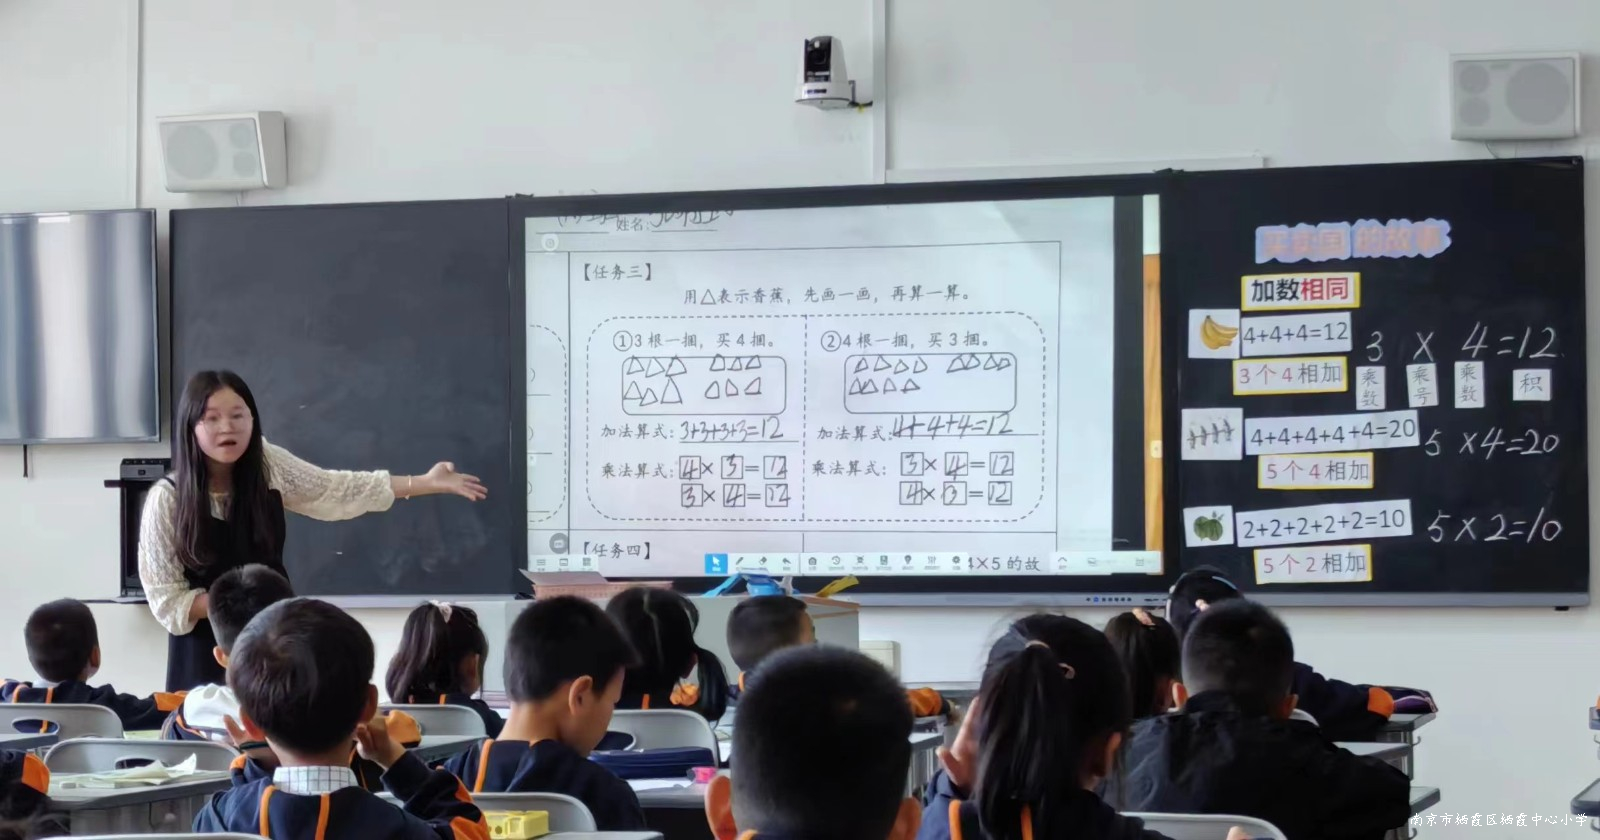 姓名:
【任务三】
用△表示香蕉，先画一画，再算一算。
①3根一捆，买4捆。
加法算式: 3+3+3+3=12
乘法算式: 4×3=12
3×4=12
②4根一捆，买3捆。
加法算式: 4+4+4=12
乘法算式: 3×4=12
4×3=12
【任务四】
4×5的故
的故事
加数相同
4+4+4=12
3个4相加
3×4=12
乘数 乘号 乘数 积
4+4+4+4+4=20
5×4=20
5个4相加
2+2+2+2+2=10
5×2=10
5个2相加
南京市栖霞区栖霞中心小学